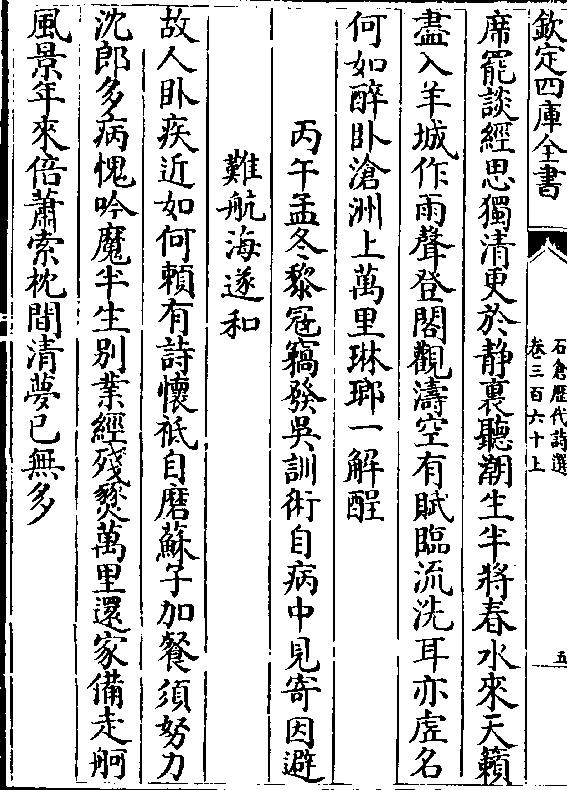 欽定四庫全書
石倉歷代詩選
卷三百六十上
五
席罷談經思獨清更於静裏聽潮生半將春水來天籟
盡入羊城作雨聲登閣觀濤空有賦臨流洗耳亦虛名
何如醉卧滄洲上萬里琳瑯一解酲
丙午孟冬黎冦竊發吳訓術自病中見寄因避
難航海遂和
故人卧疾近如何頼有詩懷祗自磨蘇子加餐須努力
沈郎多病愧吟魔半生别業經殘燹萬里還家備走舸
風景年來倍蕭索枕間清夢已無多